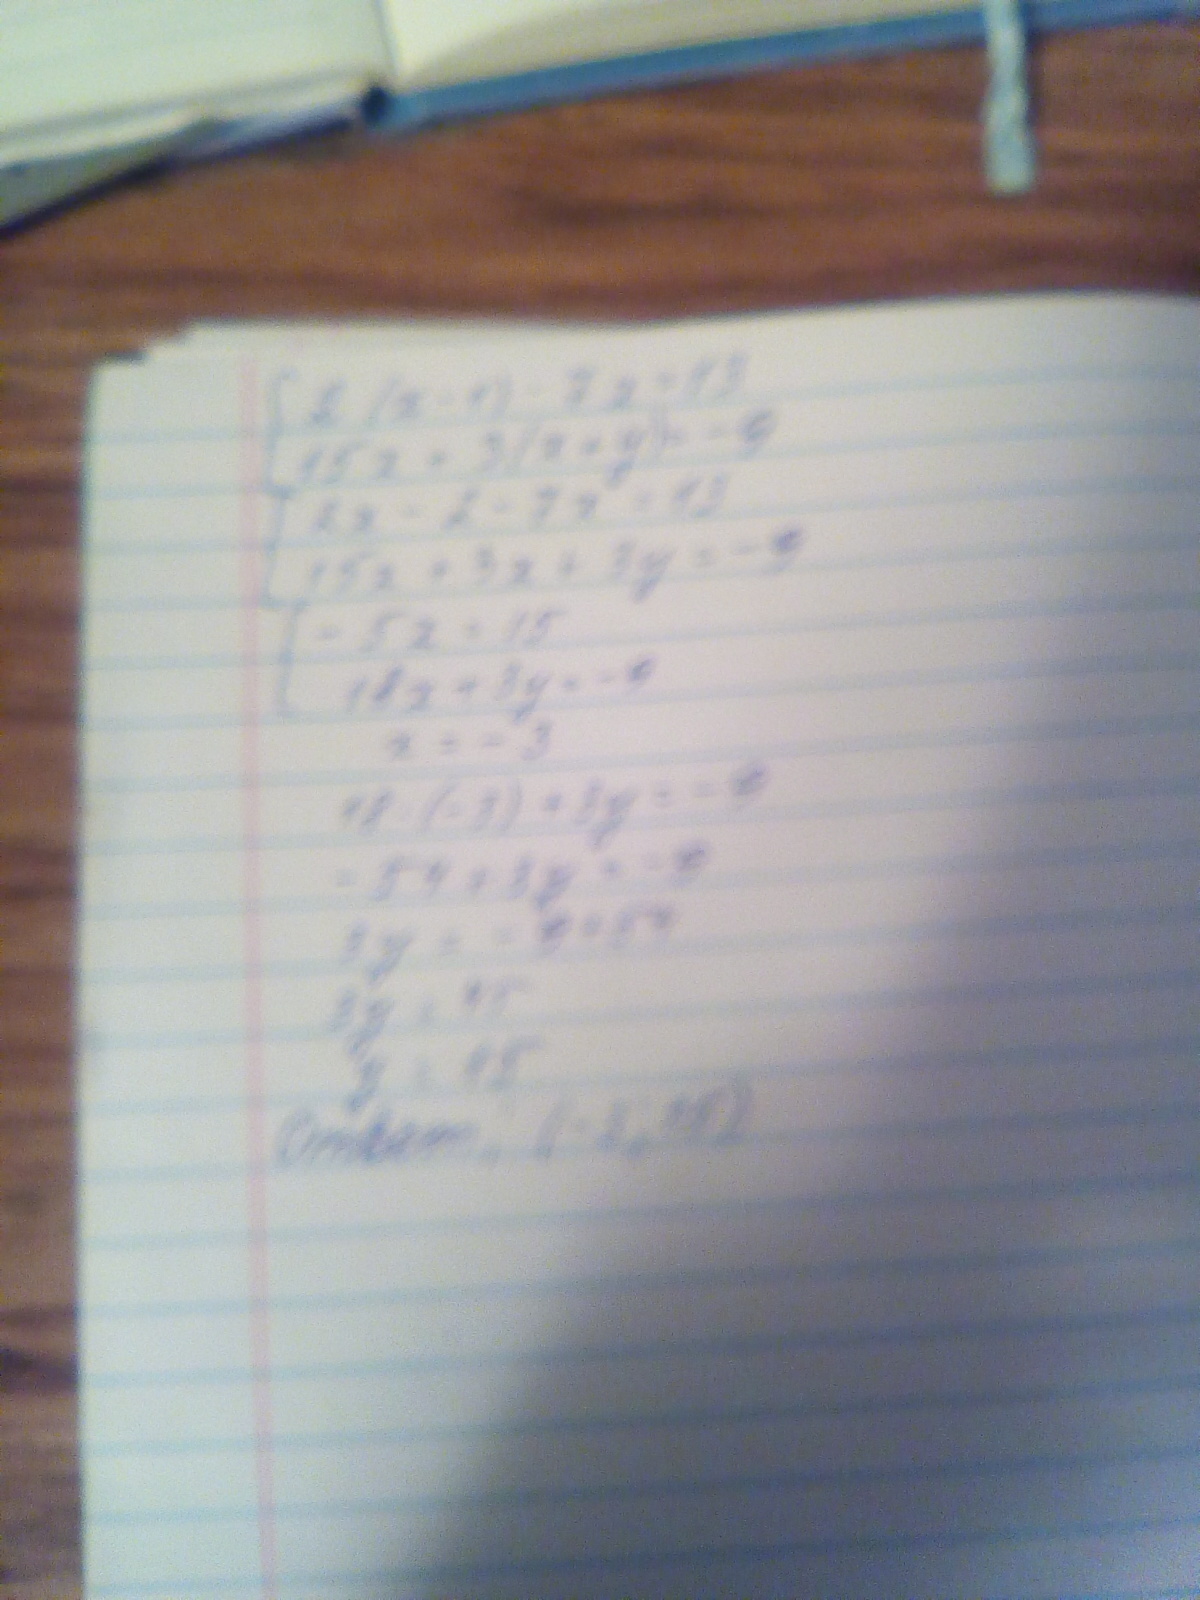 2 (x - 1) - 7x = 13
15x + 3(x + y) = -9
2x - 2 - 7x = 13
15x + 3x + 3y = -9
-5x = 15
18x + 3y = -9
x = -3
18 · (-3) + 3y = -9
-54 + 3y = -9
3y = -9 + 54
3y = 45
y = 15
Ответ: (-3; 15)